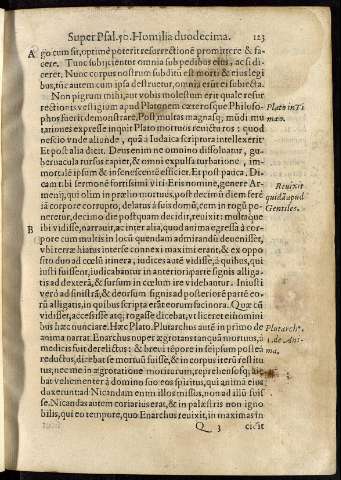 Super Psal. 50. Homilia duodecima. 123
A go cum sit, optimè poterit resurrectionē promittere & fa-
cere. Tunc subijcientes omnia sub pedibus eius, ac si di
ceret. Nunc corpus nostrum subditū est morti & eius legi
bus, tūc autem cum ipsa destruetur, omnia erūt ei subiecta.
Non pigrum mihi, aut vobis molestum erit quale resur
rectionis vestigium apud Platonem cæterosque Philoso-
phos fuerit demonstrare. Post multas magnasq; mūdi mu
tationes expresse inquit Plato mortuos reuicturos : quod
nescio vnde aliunde, quā à Iudaica scriptura intellexerit
Et post alia dicit. Deus enim ne omnino dissoluatur, gu-
bernacula rursus capiet, & omni expulsa turbatione, im-
mortale ipsum & insenescens efficiet. Et post pauca. Di-
cam tibi sermone fortissimi viti Eris nomine, genere Ar-
menij, qui olim in prælio mortuus, post decimū diem sere
iā corpore corrupto, delatus à suis domū, cum in rogū po-
neretur, decimo die postquam decidit, reuixit : multaque
B ibi vidisse, narrauit, ac inter alia, quod anima egressa à cor-
pore cum multis in locū quendam admirandū deuenisset,
vbi terræ hiatus inter se connexi maximi erant, & ex oppo
sito duo ad cœlū itinera, iudices autē vidisse, à quibus, qui
iusti fuissent, iudicabantur in anteriori parte signis alliga-
tis ad dexterā, & sursum in cœlum ire videbantur. Iniusti
verò ad sinistrā, & deorsum signis ad posteriorē parte eo-
rū alligatis, in quibus scripta erāt eorum facinora. Quæ cū
vidisset, accessisse atq; rogasse dicebat, vt liceret ei homini
bus hæc nunciare. Hæc Plato. Plutarchus autē in primo de
anima narrat. Enarchus nuper ægrotans tanquā mortuus, à
medicis fuit derelictus : & breui tēpore in seipsum postea
reductus, dixit se se mortuū fuisse, & in corpus iterū restitu
tus, nec me in ægrotatione moriturum, reprehensosq; bie
bat vehementer à domino suo eos spiritus, qui animā eius
duxerunt, ad Nicandam enim illos missos, non ad illū fuis
se. Nicandas autem coriarius erat, & in palæstris non igno
bilis, qui eo tempore, quo Enarchus reuixit, in maximas in
Q 3 cidit
Plato in Ti
mæo.
Reuixit
quidā apud
Gentiles.
Plutarchꝰ
1. de Ani-
ma.